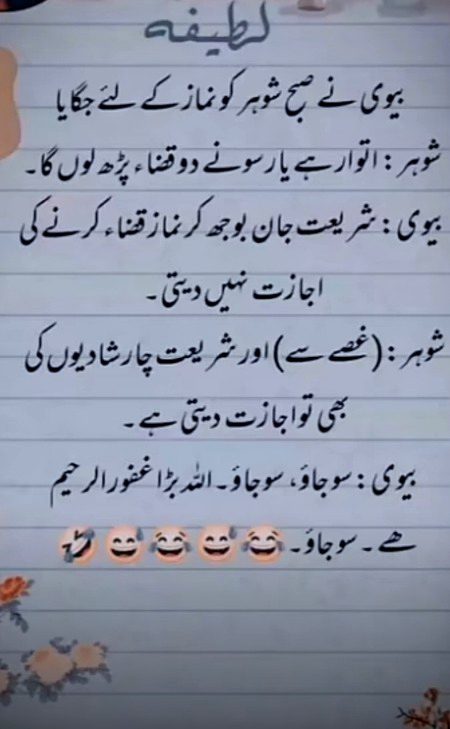 لطیفہ
بیوی نے صبح شوہر کو نماز کے لئے جگایا
شوہر : اتوار ہے یار سونے دو قضاء پڑھ لوں گا۔
بیوی : شریعت جان بوجھ کر نماز قضاء کرنے کی
اجازت نہیں دیتی۔
شوہر : (غصے سے) اور شریعت چار شادیوں کی
بھی تو اجازت دیتی ہے۔
بیوی : سو جاؤ، سو جاؤ۔ اللہ بڑا غفور الرحیم
ھے۔ سو جاؤ۔ 😂😅😂😅🤣